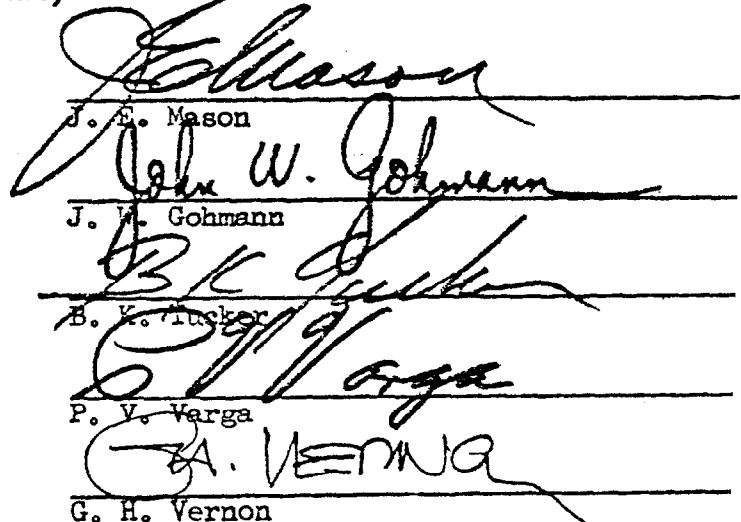 JEMason
J. E. Mason
John W. Gohmann
J. W. Gohmann
B K Tucker
B. K. Tucker
P V Varga
P. V. Varga
G. H. Vernon